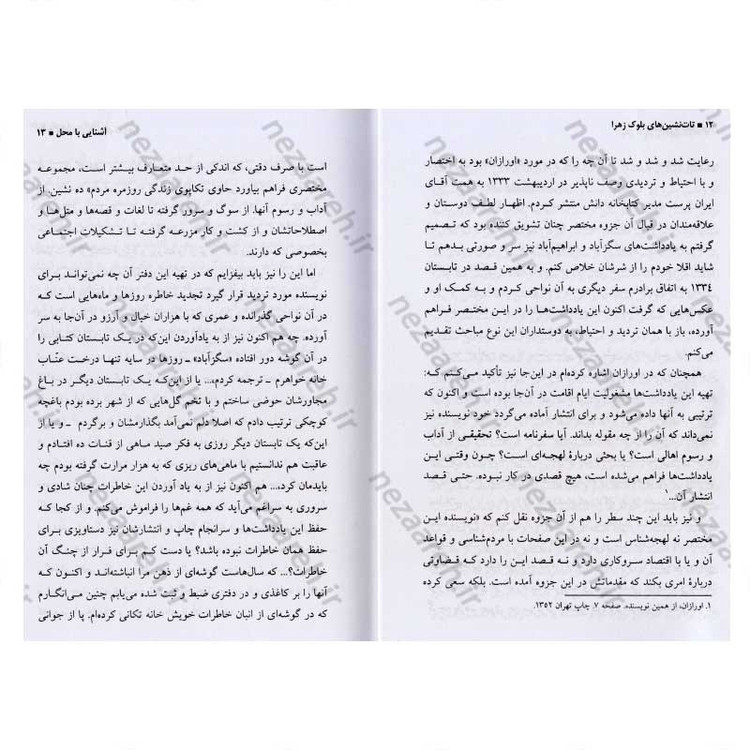 ۱۲ ■ تات‌نشین‌های بلوک زهرا
رعایت شد و شد و شد تا آن چه را که در مورد «اورازان» بود به اختصار
و با احتیاط و تردیدی وصف ناپذیر در اردیبهشت ۱۳۳۳ به همت آقای
ایران پرست مدیر کتابخانه دانش منتشر کردم. اظهار لطف دوستان و
علاقه‌مندان در قبال آن جزوه مختصر چنان تشویق کننده بود که تصمیم
گرفتم به یادداشت‌های سگزآباد و ابراهیم‌آباد نیز سر و صورتی بدهم تا
شاید اقلا خودم را از شرشان خلاص کنم. و به همین قصد در تابستان
۱۳۳٤ به اتفاق برادرم سفر دیگری به آن نواحی کردم و به کمک او و
عکس‌هایی که گرفت اکنون این یادداشت‌ها را در این مختصر فراهم
آورده، باز با همان تردید و احتیاط، به دوستداران این نوع مباحث تقدیم
می‌کنم.
همچنان که در اورازان اشاره کرده‌ام در این‌جا نیز تأکید می‌کنم که:
تهیه این یادداشت‌ها مشغولیت ایام اقامت در آن‌جا بوده است و اکنون که
ترتیبی به آنها داده می‌شود و برای انتشار آماده می‌گردد خود نویسنده نیز
نمی‌داند که آن را از چه مقوله بداند. آیا سفرنامه است؟ تحقیقی از آداب
و رسوم اهالی است؟ یا بحثی دربارهٔ لهجه‌ای است؟ چون وقتی این
یادداشت‌ها فراهم می‌شده است، هیچ قصدی در کار نبوده. حتی قصد
انتشار آن...۱
و نیز باید این چند سطر را هم از آن جزوه نقل کنم که «نویسنده این
مختصر نه لهجه‌شناس است و نه در این صفحات با مردم‌شناسی و قواعد
آن و یا با اقتصاد سروکاری دارد و نه قصد این را دارد که قضاوتی
دربارهٔ امری بکند که مقدماتش در این جزوه آمده است. بلکه سعی کرده
۱. اورازان، از همین نویسنده. صفحه ۷. چاپ تهران ۱۳۵۲.
آشنایی با محل ■ ۱۳
است با صرف دقتی، که اندکی از حد متعارف بیشتر است، مجموعه
مختصری فراهم بیاورد حاوی تکاپوی زندگی روزمره مردم» ده نشین. از
آداب و رسوم آنها، از سوگ و سرور گرفته تا لغات و قصه‌ها و متل‌ها و
اصطلاحاتشان و از کشت و کار مزرعه گرفته تا تشکیلات اجتماعی
بخصوصی که دارند.
اما این را نیز باید بیفزایم که در تهیه این دفتر آن چه نمی‌تواند برای
نویسنده مورد تردید قرار گیرد تجدید خاطره روزها و ماه‌هایی است که
در آن نواحی گذرانده و عمری که با هزاران خیال و آرزو در آن‌جا به سر
آورده. چه هم اکنون نیز از به یادآوردن این‌که در یک تابستان کتابی را
در آن گوشه دور افتاده «سگزآباد» ـ روزها در سایه تنها درخت عنّاب
خانه خواهرم ـ ترجمه کردم،... یا از این‌که یک تابستان دیگر در باغ
مجاورشان حوضی ساختم و با تخم گل‌هایی که از شهر برده بودم باغچه
کوچکی ترتیب دادم که اصلا دلم نمی‌آمد بگذارمشان و برگردم ـ و یا از
این‌که یک تابستان دیگر روزی به فکر صید ماهی از قنات ده افتادم و
عاقبت هم ندانستیم با ماهی‌های ریزی که به هزار مرارت گرفته بودم چه
بایدمان کرد،... هم اکنون نیز از به یاد آوردن این خاطرات چنان شادی و
سروری به سراغم می‌آید که همه غم‌ها را فراموش می‌کنم. و از کجا که
حفظ این یادداشت‌ها و سرانجام چاپ و انتشارشان نیز دستاویزی برای
حفظ همان خاطرات نبوده باشد؟ یا دست کم برای فرار از چنگ آن
خاطرات؟... که سال‌هاست گوشه‌ای از ذهن مرا انباشته‌اند. و اکنون که
آنها را بر کاغذی و در دفتری ضبط و ثبت شده می‌یابم چنین می‌انگارم
که در گوشه‌ای از انبان خاطرات خویش خانه تکانی کرده‌ام. پا از جوانی
nezaareh.ir
nezaareh.ir
nezaareh.ir
nezaareh.ir
nezaareh.ir
nezaareh.ir